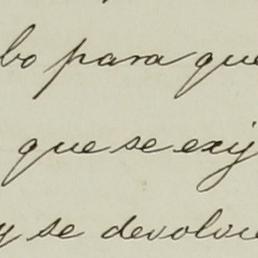 bo para que
que se exij
y se devolvie